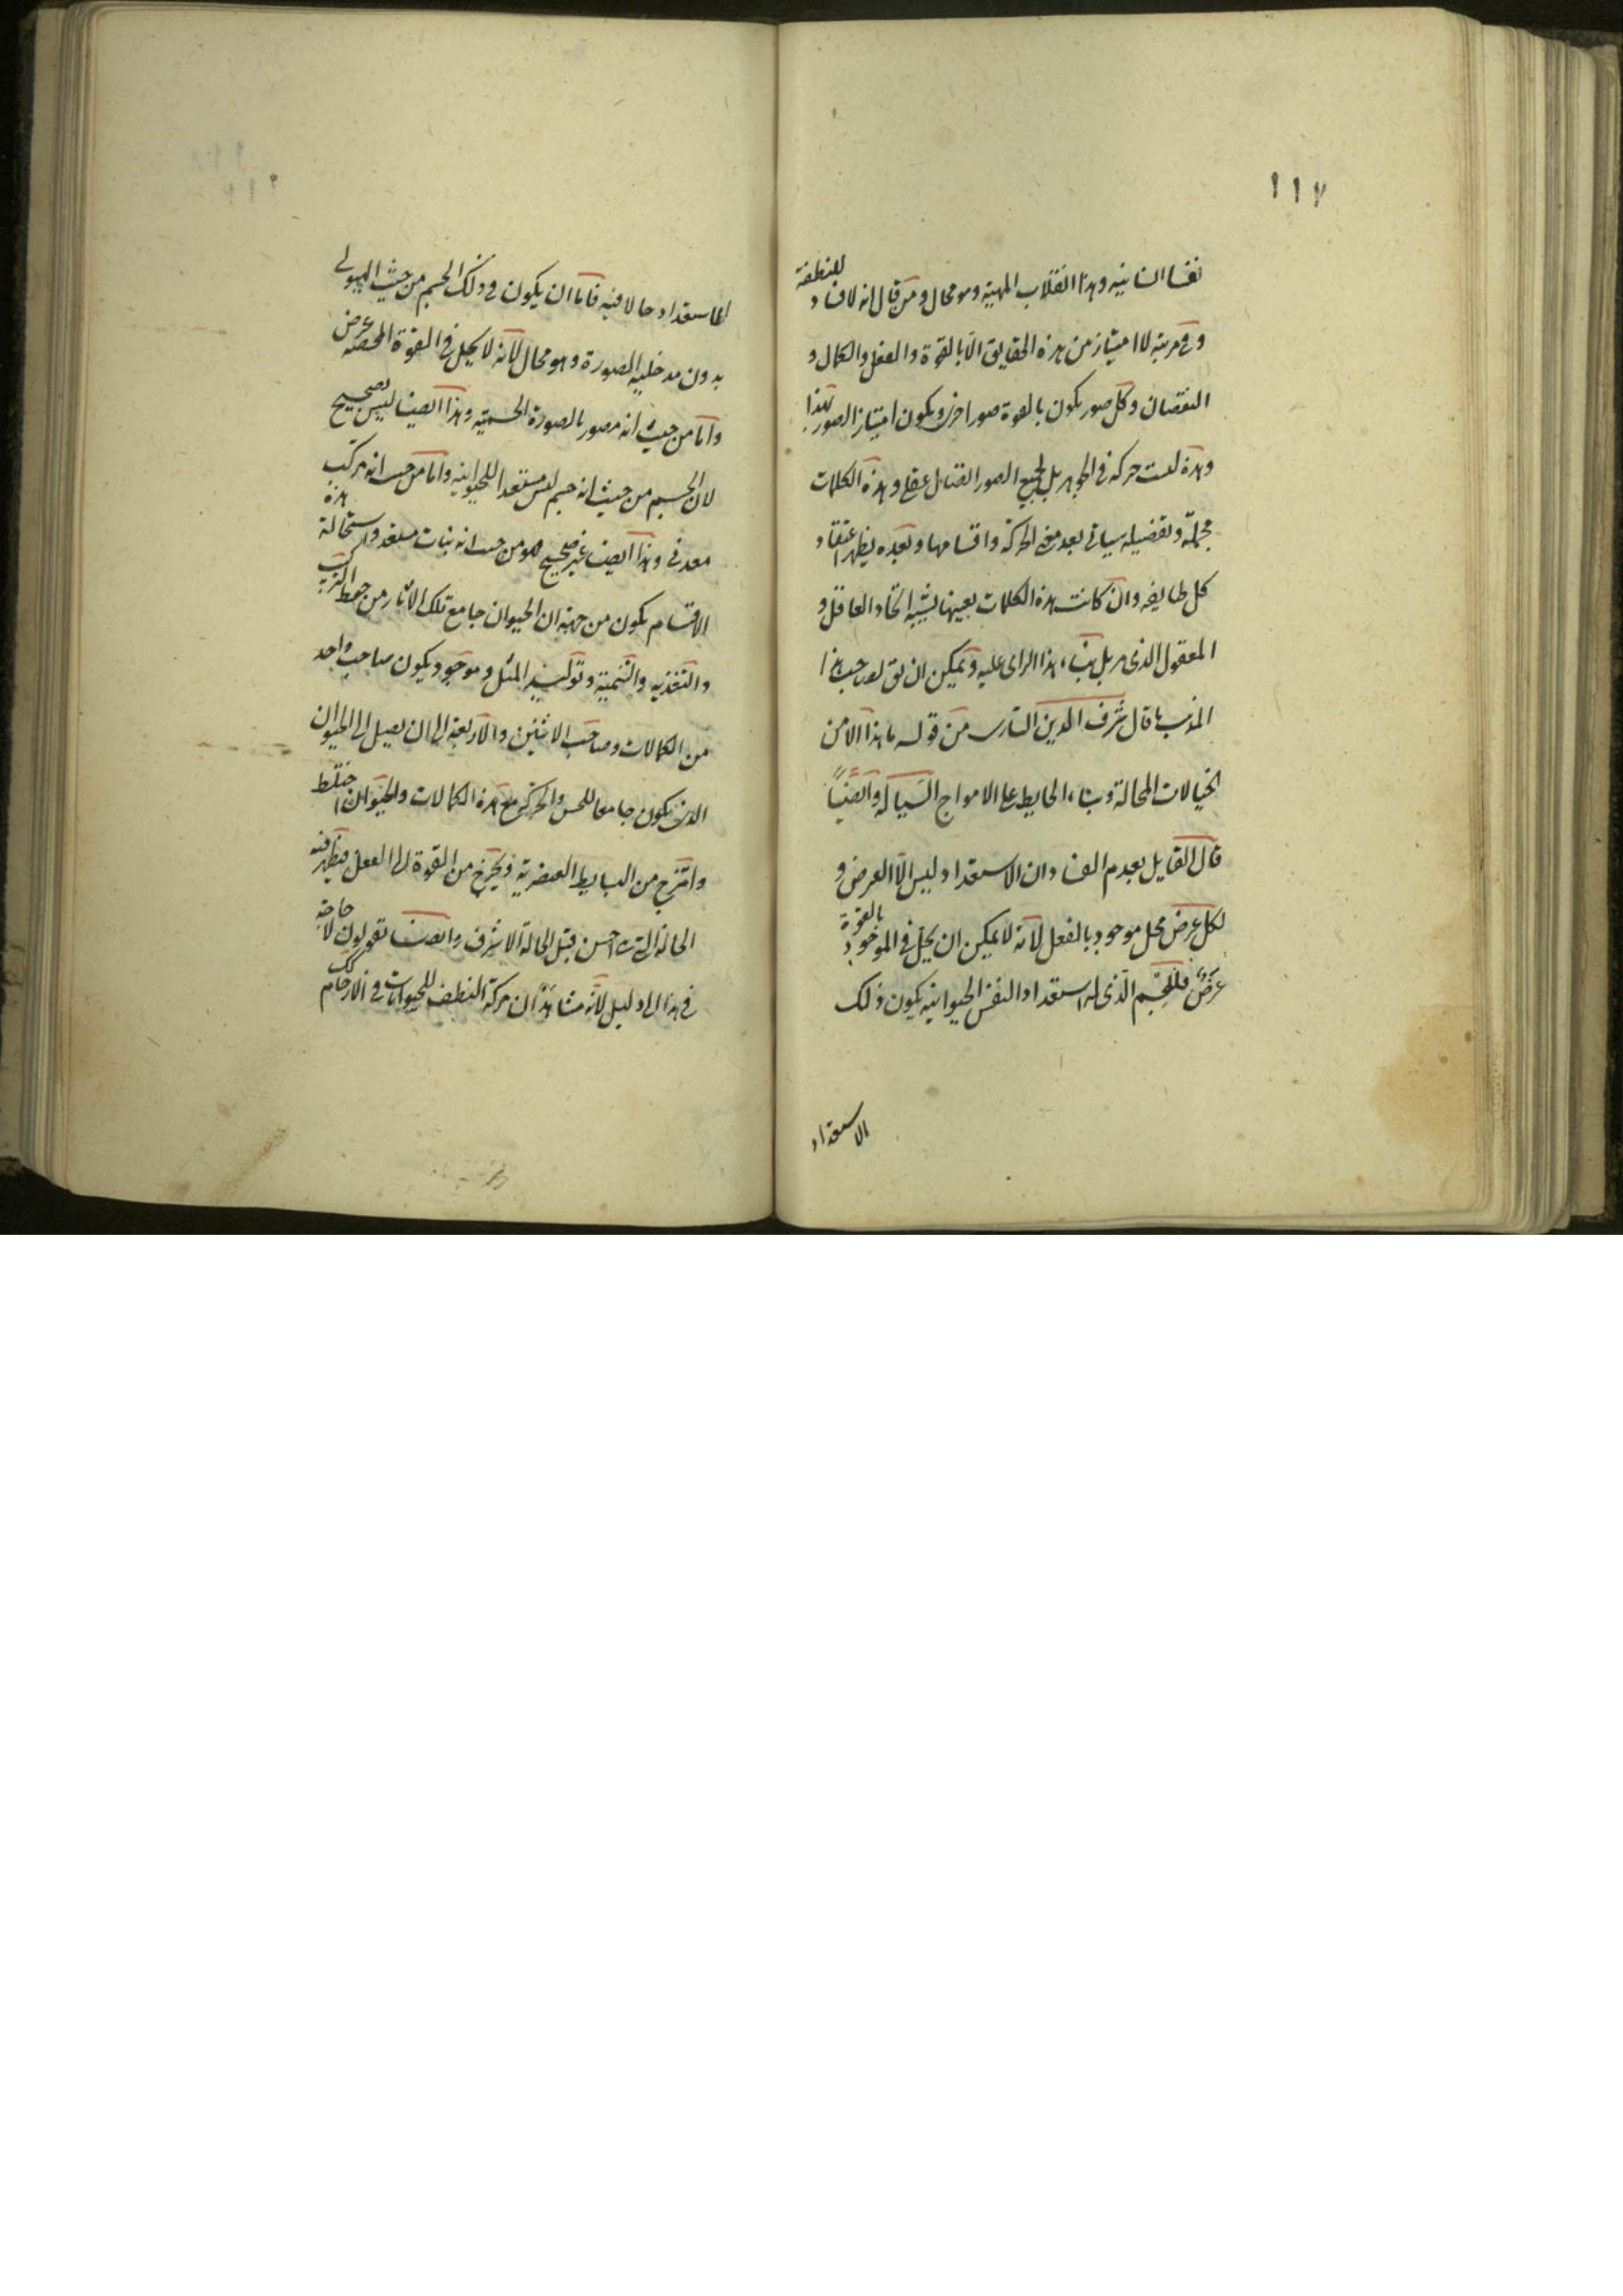 ١١٧
نفسا انسانيه وهذا انقلاب المهية وهو محال ومن قال انه لا فساد للنطفة
وفي مرتبة لا امتياز من هذه الحقايق الا بالقوة والفعل والكمال و
النقصان وكل صور يكون بالقوة صورا اخرى ويكون امتياز الصور بهذا
وهذه ليست حركة في الجوهر بل لجميع الصور اتصال عقلي وهذه الكلمات
مجملة وتفصيله سياتي بعد معنى الحركة واقسامها وبعده يظهر اعتقاد
كل طايفه وان كانت هذه الكلمات بعينها يشبه اتحاد العاقل و
المعقول الذي هو بناء هذا الراى عليه ويمكن ان يق لصاحب هذا
المذهب ما قال شرف الدين من قوله ما هذا الا من
الخيالات المحالة وبناء الحايط على الامواج السيالة وايضا
قال القايل بعدم الفساد ان الاستعداد ليس الا العرض و
لكل عرض محل موجود بالفعل لانه لا يمكن ان يحل في الموجود بالقوة
عرض فللجسم الذي له استعداد النفس الحيوانيه يكون ذلك
الاستعداد
الاستعداد حالا فيه فاما ان يكون في ذلك الجسم من حيث الهيولى
بدون مدخلية الصورة وهو محال لانه لا يحل في القوة المحضة عرض
واما من حيث انه مصور بالصورة الجسمية وهذا ايضا ليس بصحيح
لان الجسم من حيث انه جسم ليس مستعدا للحيوانيه واما من حيث انه مركب
معدني وهذا ايضا غير صحيح او من حيث انه نبات مستعد واستحالة هذه
الاقسام يكون من جهة ان الحيوان جامع تلك الاثار من حفظ التركيب
والتغذيه والتنمية وتوليد المثل وهو موجود ويكون صاحب واحد
من الكمالات وصاحب الاثنين والاربعة الى ان يصل الى الحيوان
الذي يكون جامعا للحس والحركة مع هذه الكمالات والحيوان اختلط
وامتزج من البسايط العنصرية ويخرج من القوة الى الفعل فيظهر فيه
الحالة التي احسن قبل الحالة الاشرف وايضا تقولون لا حاجة
في هذا الى دليل لانه مشاهد ان حركة النطف للحيوانات في الارحام